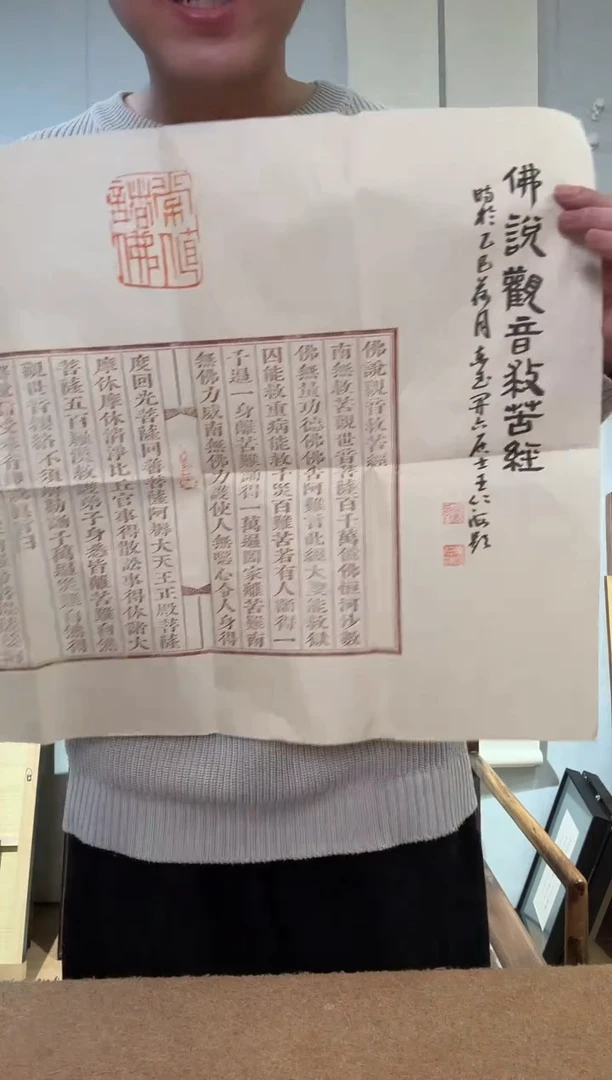 佛說觀音救苦經
時於乙巳荷月
佛說觀音救苦經
南無救苦觀世音菩薩百千萬億佛恒河沙數
佛無量功德佛佛告阿難言此經大聖能救獄
囚能救重病能救千災百難苦若有人誦得一
千遍一身離苦難誦得一萬遍國家離苦難南
無佛力威南無佛力護使人無惡心令人身得
度回光菩薩回善菩薩阿耨大天王正殿菩薩
摩休摩休清淨比丘官事得散訟事得休諸大
菩薩五百羅漢救護弟子身悉皆離苦難自然
觀世音纓絡不須解勤誦千萬遍災難自然得
諸佛